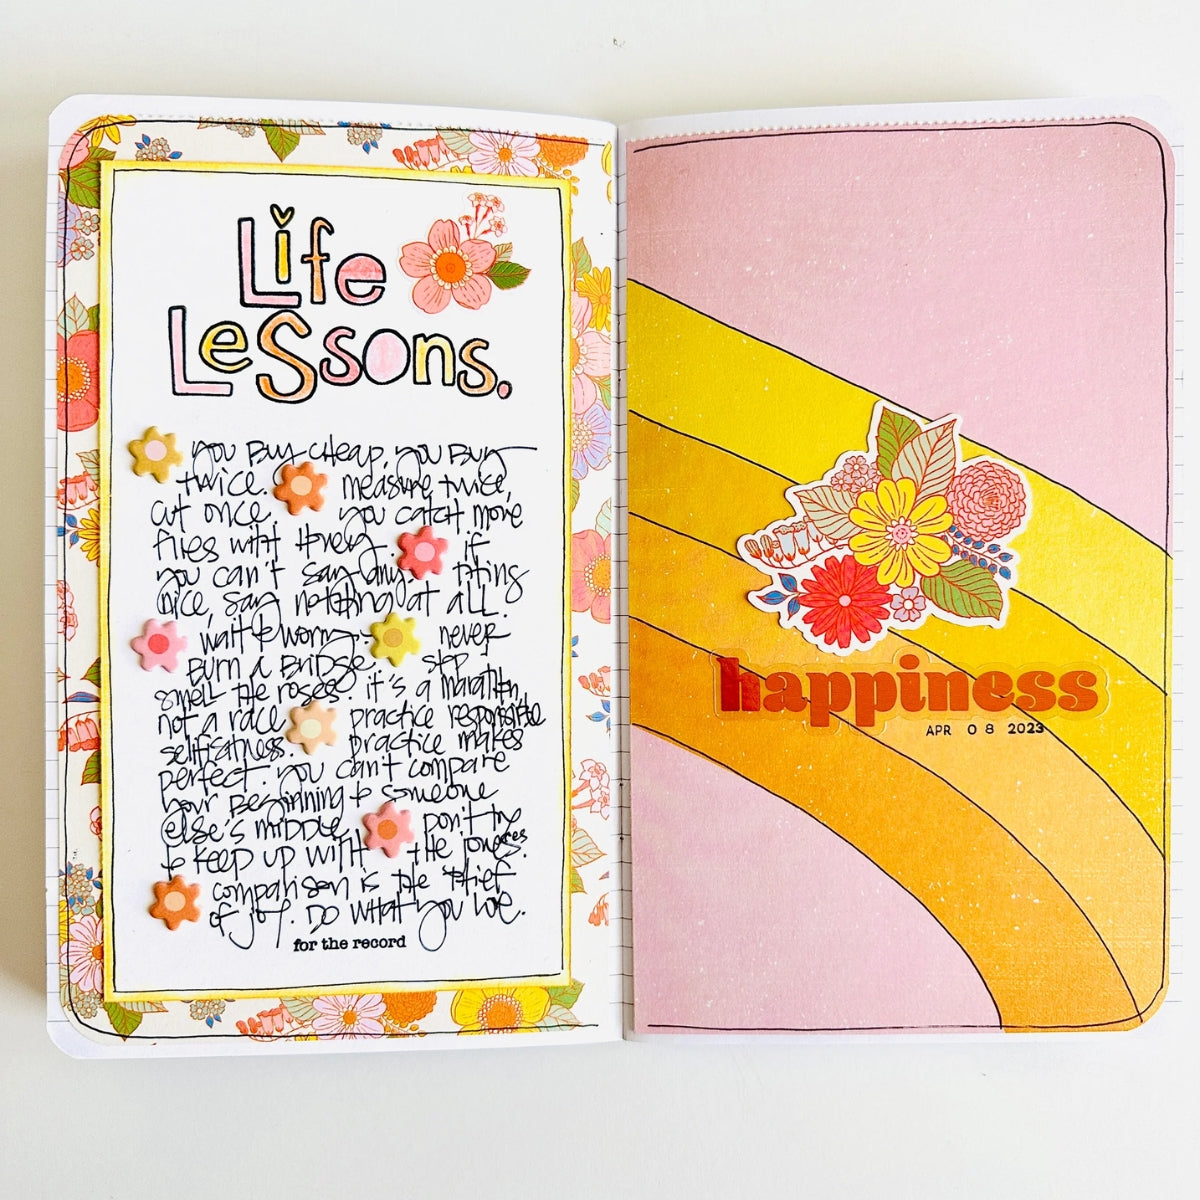 Life
Lessons.
you buy cheap, you buy
twice. measure twice,
cut once. you catch more
flies with honey. if
you can't say any thing
nice, say nothing at all.
wait to worry. never
burn a bridge. stop
smell the roses. it's a marathon,
not a race. practice responsible
selfishness. practice makes
perfect. you can't compare
your beginning to someone
else's middle. don't try
to keep up with the joneses.
comparison is the thief
of joy. Do what you love.
for the record
happiness
APR 08 2023